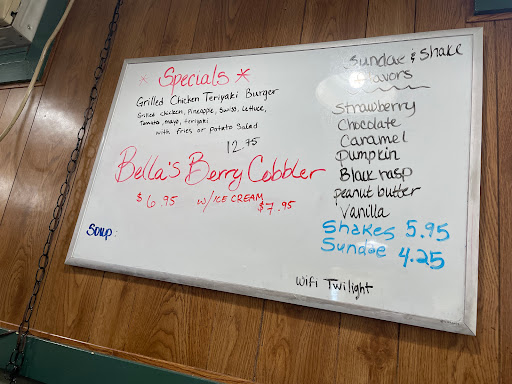 * Specials *
Grilled Chicken Teriyaki Burger
Grilled chicken, Pineapple, Swiss, Lettuce,
Tomato, mayo, teriyaki
with fries or potato Salad
12.95
Bella's Berry Cobbler
$6.95 w/ICE CREAM $7.95
Soup:
Sundae & Shake
flavors
Strawberry
Chocolate
Caramel
pumpkin
Black rasp
peanut butter
Vanilla
Shakes 5.95
Sundae 4.25
Wifi Twilight